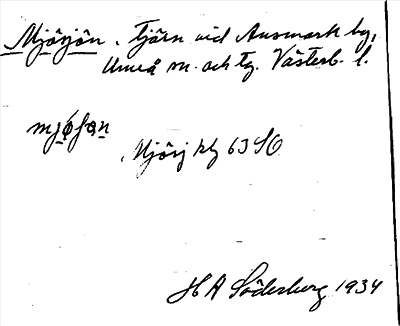 Mjösjön. Tjärn vid Ansmark by,
Umeå sn. och tg. Västerb. l.
mjǿʃɑn
Mjösj kbl 63 SO
H A Söderberg 1934